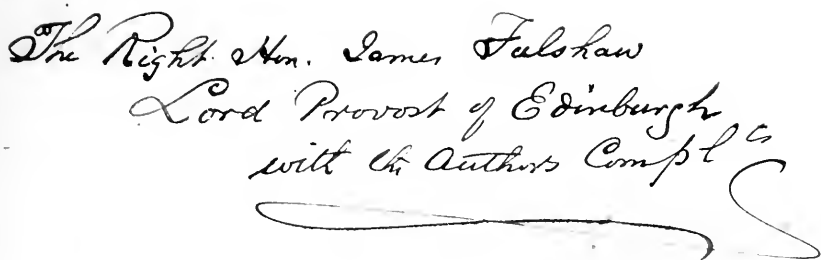 The Right Hon. James Falshaw
Lord Provost of Edinburgh
with the Authors Compl ts